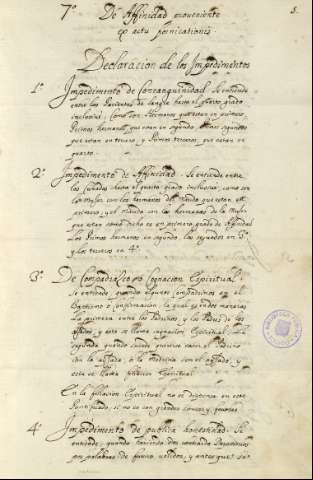 7º De Affinidad proueniente 5.
ex actu fornicationis
Declaracion de los Impedimentos
1º Impedimento de Consanguinidad. Se entiende
entre los Parientes de sangre hasta el quarto grado
inclusiue, Como son Hermanos que estan en primero,
Primos hermanos que estan en segundo, Primos segundos
que estan en tercero, y Primos terceros, que estan en
quarto.
2º Impedimento de Affinidad. Se entiende entre
los Cuñados hasta el quarto grado inclusiue, como son
la Muger con los hermanos del Marido que estan en
primero, y el Marido con las hermanas de la Muger
que estan como dicho es en primer grado de Affinidad
Los Primos hermanos en segundo, los segundos en 3º
y los terceros en 4º
3º De Compadrazgo o Cognacion Espiritual
Se entiende quando algunos contrahemos en el
Baptismo o Confirmacion, la qual es en dos maneras
La primera entre los Padrinos y los Padres de los
ahijados, y esta se llama cognacion Espiritual. La
segunda quando sucede querese casar el Padrino
con la ahijada, o la Madrina con el ahijado, y
esta se llama filiacion Espiritual
En la filiacion Espiritual no se dispensa en este
Pontificado, si no es con grandes causas, y
4º Impedimento de publica honestidad. Se
entiende, quando hauiendo dos contrahido Desposorios
por palabras de futuro, validos, y antes que